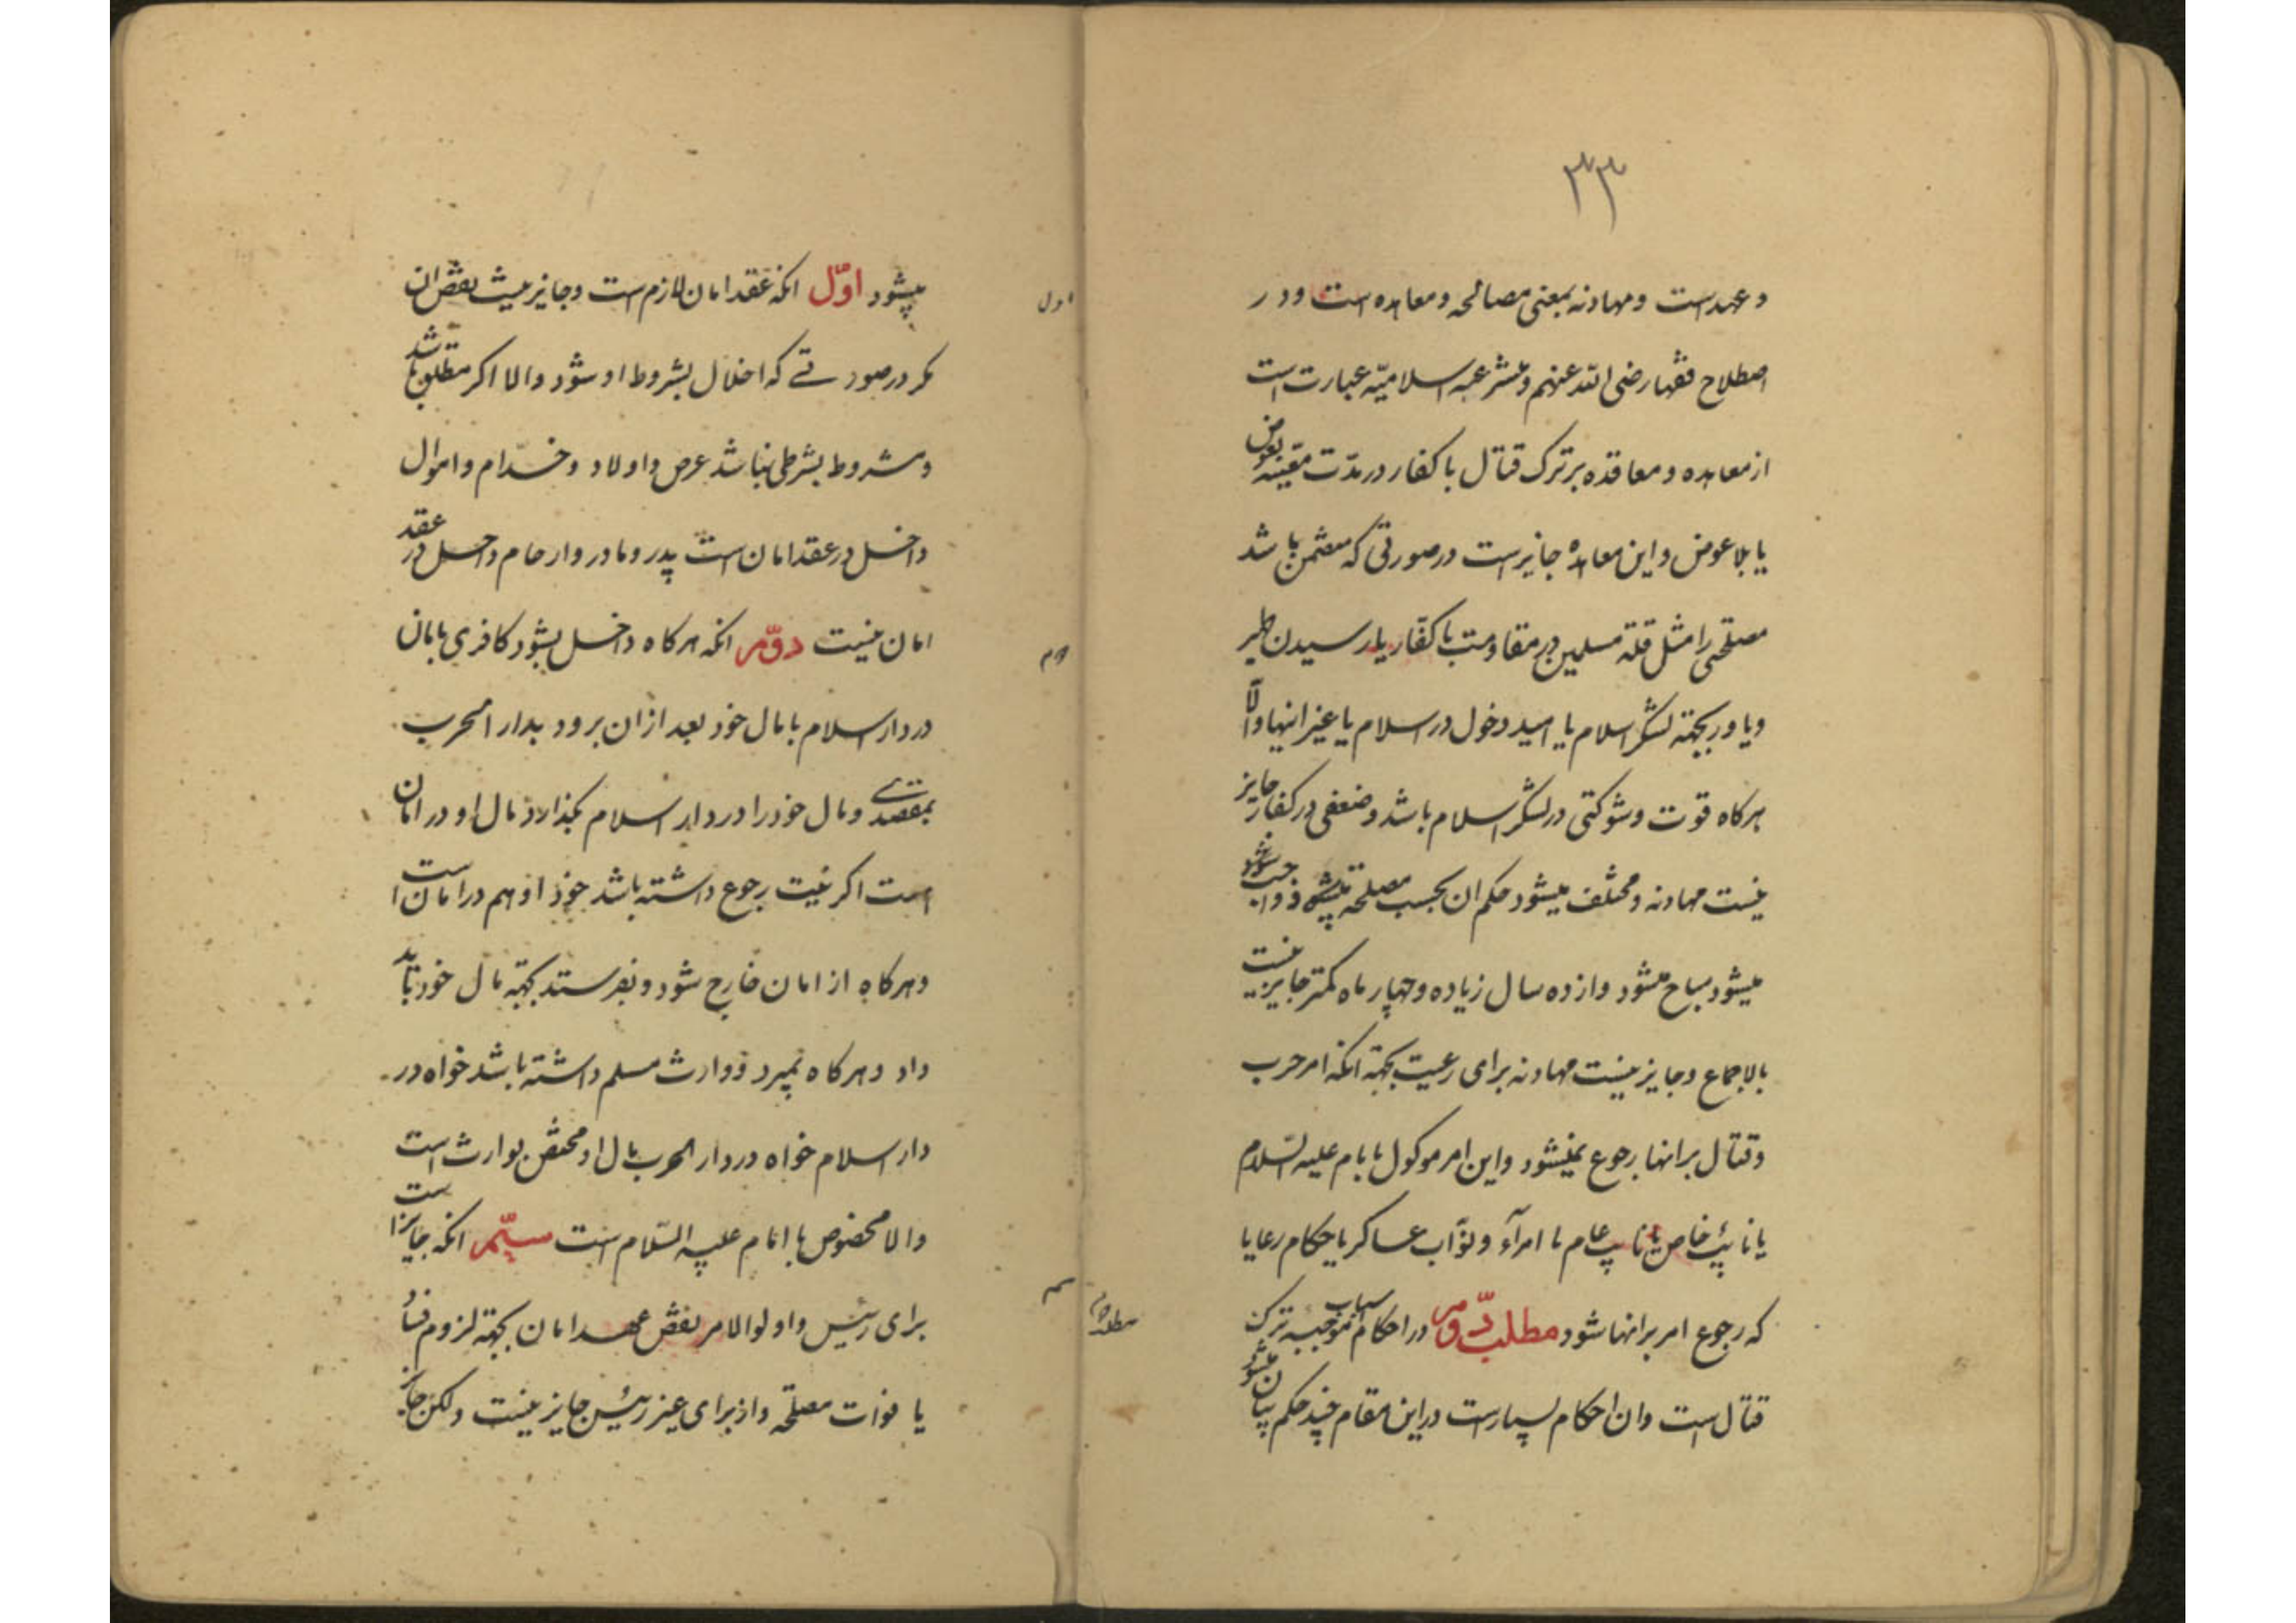 ۳۳
و عهد است و مهادنه بمعنی مصالحه و معاهده است و در
اصطلاح فقها رضی الله عنهم و متشرعه اسلامیّه عبارت است
از معاهده و معاقده بر ترک قتال با کفار در مدّت معیّنه بعوض
یا بلاعوض و این معاهده جایز است در صورتی که متضمن باشد
مصلحتی را مثل قلة مسلمین در مقاومت با کفّار یا رسیدن ظهیر
و یاور بجهته لشکر اسلام یا امید دخول در اسلام یا غیر اینها و الّا
هرکاه قوت و شوکتی در لشکر اسلام باشد و ضعفی در کفار جایز
نیست مهادنه و مختلف میشود حکم ان بحسب مصلحة واجب
میشود مباح میشود و از ده سال زیاده و چهار ماه کمتر جایز نیست
بالاجماع و جایز نیست مهادنه برای رعیت بجهته انکه امر حرب
و قتال برانها رجوع نمیشود و این امر موکول بامام علیه السّلام
یا نائب خاص یا نایب عام یا امرآء و نوّاب عساکر یا حکام رعایا
که رجوع امر برانها شود مطلب دوّم در احکام اسباب موجبه ترک
مطلب دوم
قتال است و ان احکام بسیار است در این مقام چند حکم بیان میشود
میشود اوّل انکه عقد امان لازم است و جایز نیست نقض ان
اول
مکر در صورتے که اخلال بشروط او شود و الا اکر مطلق باشد
و مشروط بشرطی نباشد عرض و اولاد و خدّام و اموال
داخل در عقد امان است پدر و مادر و ارحام داخل در عقد
امان نیست دوّم انکه هرکاه داخل بشود کافری بامان
دوم
در دار اسلام با مال خود بعد از ان برود بدار الحرب
بمقصدے و مال خود را در دار اسلام بکذارد مال او در امان
است اکر نیت رجوع داشته باشد خود او هم در امان است
و هرکاه از امان خارج شود و بفرستد بجهته مال خود باید
داد و هرکاه بمیرد و وارث مسلم داشته باشد خواه در
دار اسلام خواه در دار الحرب مال او مختص بوارث است
والا مخصوص با امام علیه السّلام است سیّم انکه جایز است
سیم
برای رئیس و اولوالامر نقض عهد امان بجهته لزوم فساد
یا فوات مصلحة و از برای غیر رئیس جایز نیست و لکن جایز